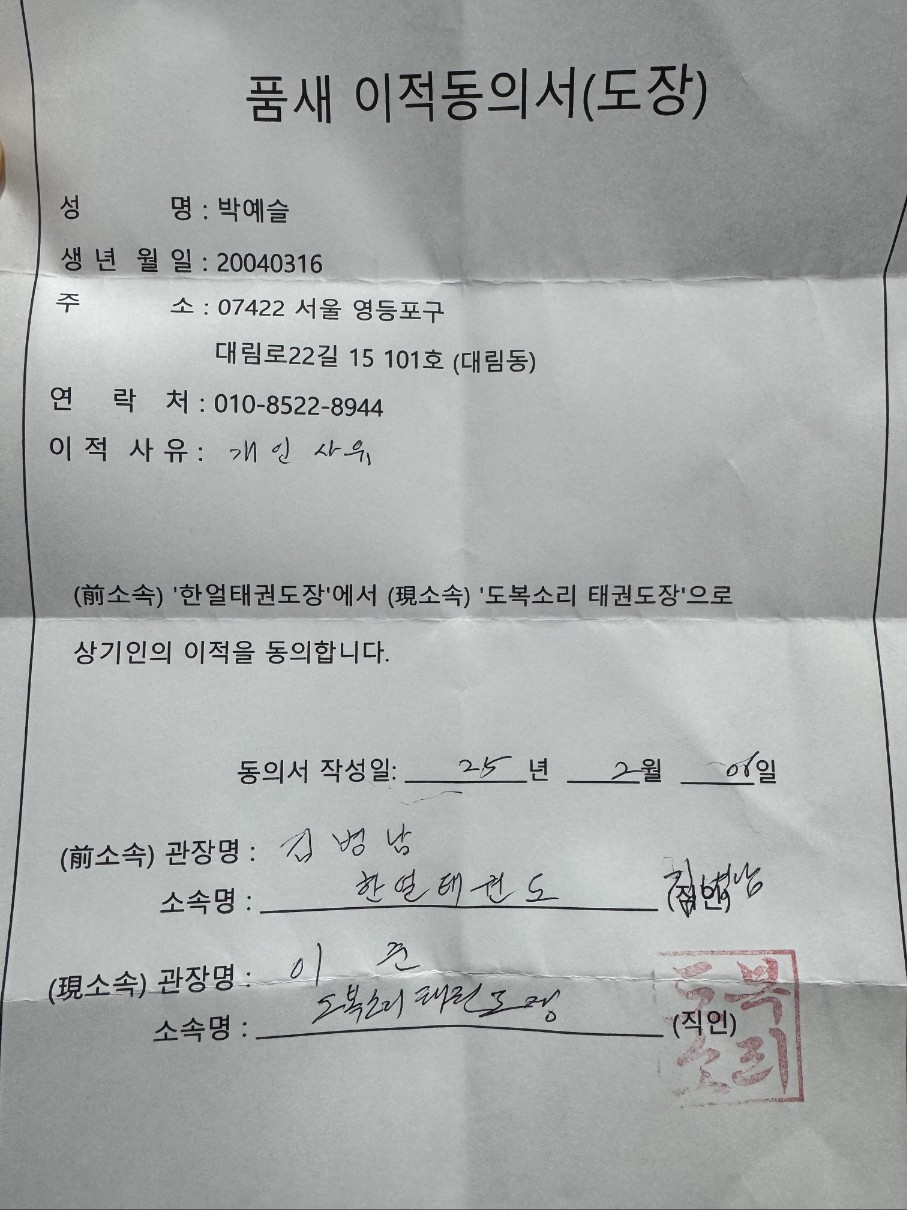 품새 이적동의서(도장)
성 명 : 박예슬
생 년 월 일 : 20040316
주 소 : 07422 서울 영등포구
대림로22길 15 101호 (대림동)
연 락 처 : 010-8522-8944
이 적 사 유 : 개인 사유
(前소속) '한얼태권도장'에서 (現소속) '도복소리 태권도장'으로
상기인의 이적을 동의합니다.
동의서 작성일: 25 년 2월 06일
(前소속) 관장명 : 김병남
소속명 : 한얼태권도 (직인) 김병남
(現소속) 관장명 : 이 준
소속명 : 도복소리 태권도장 (직인)
도복
소리